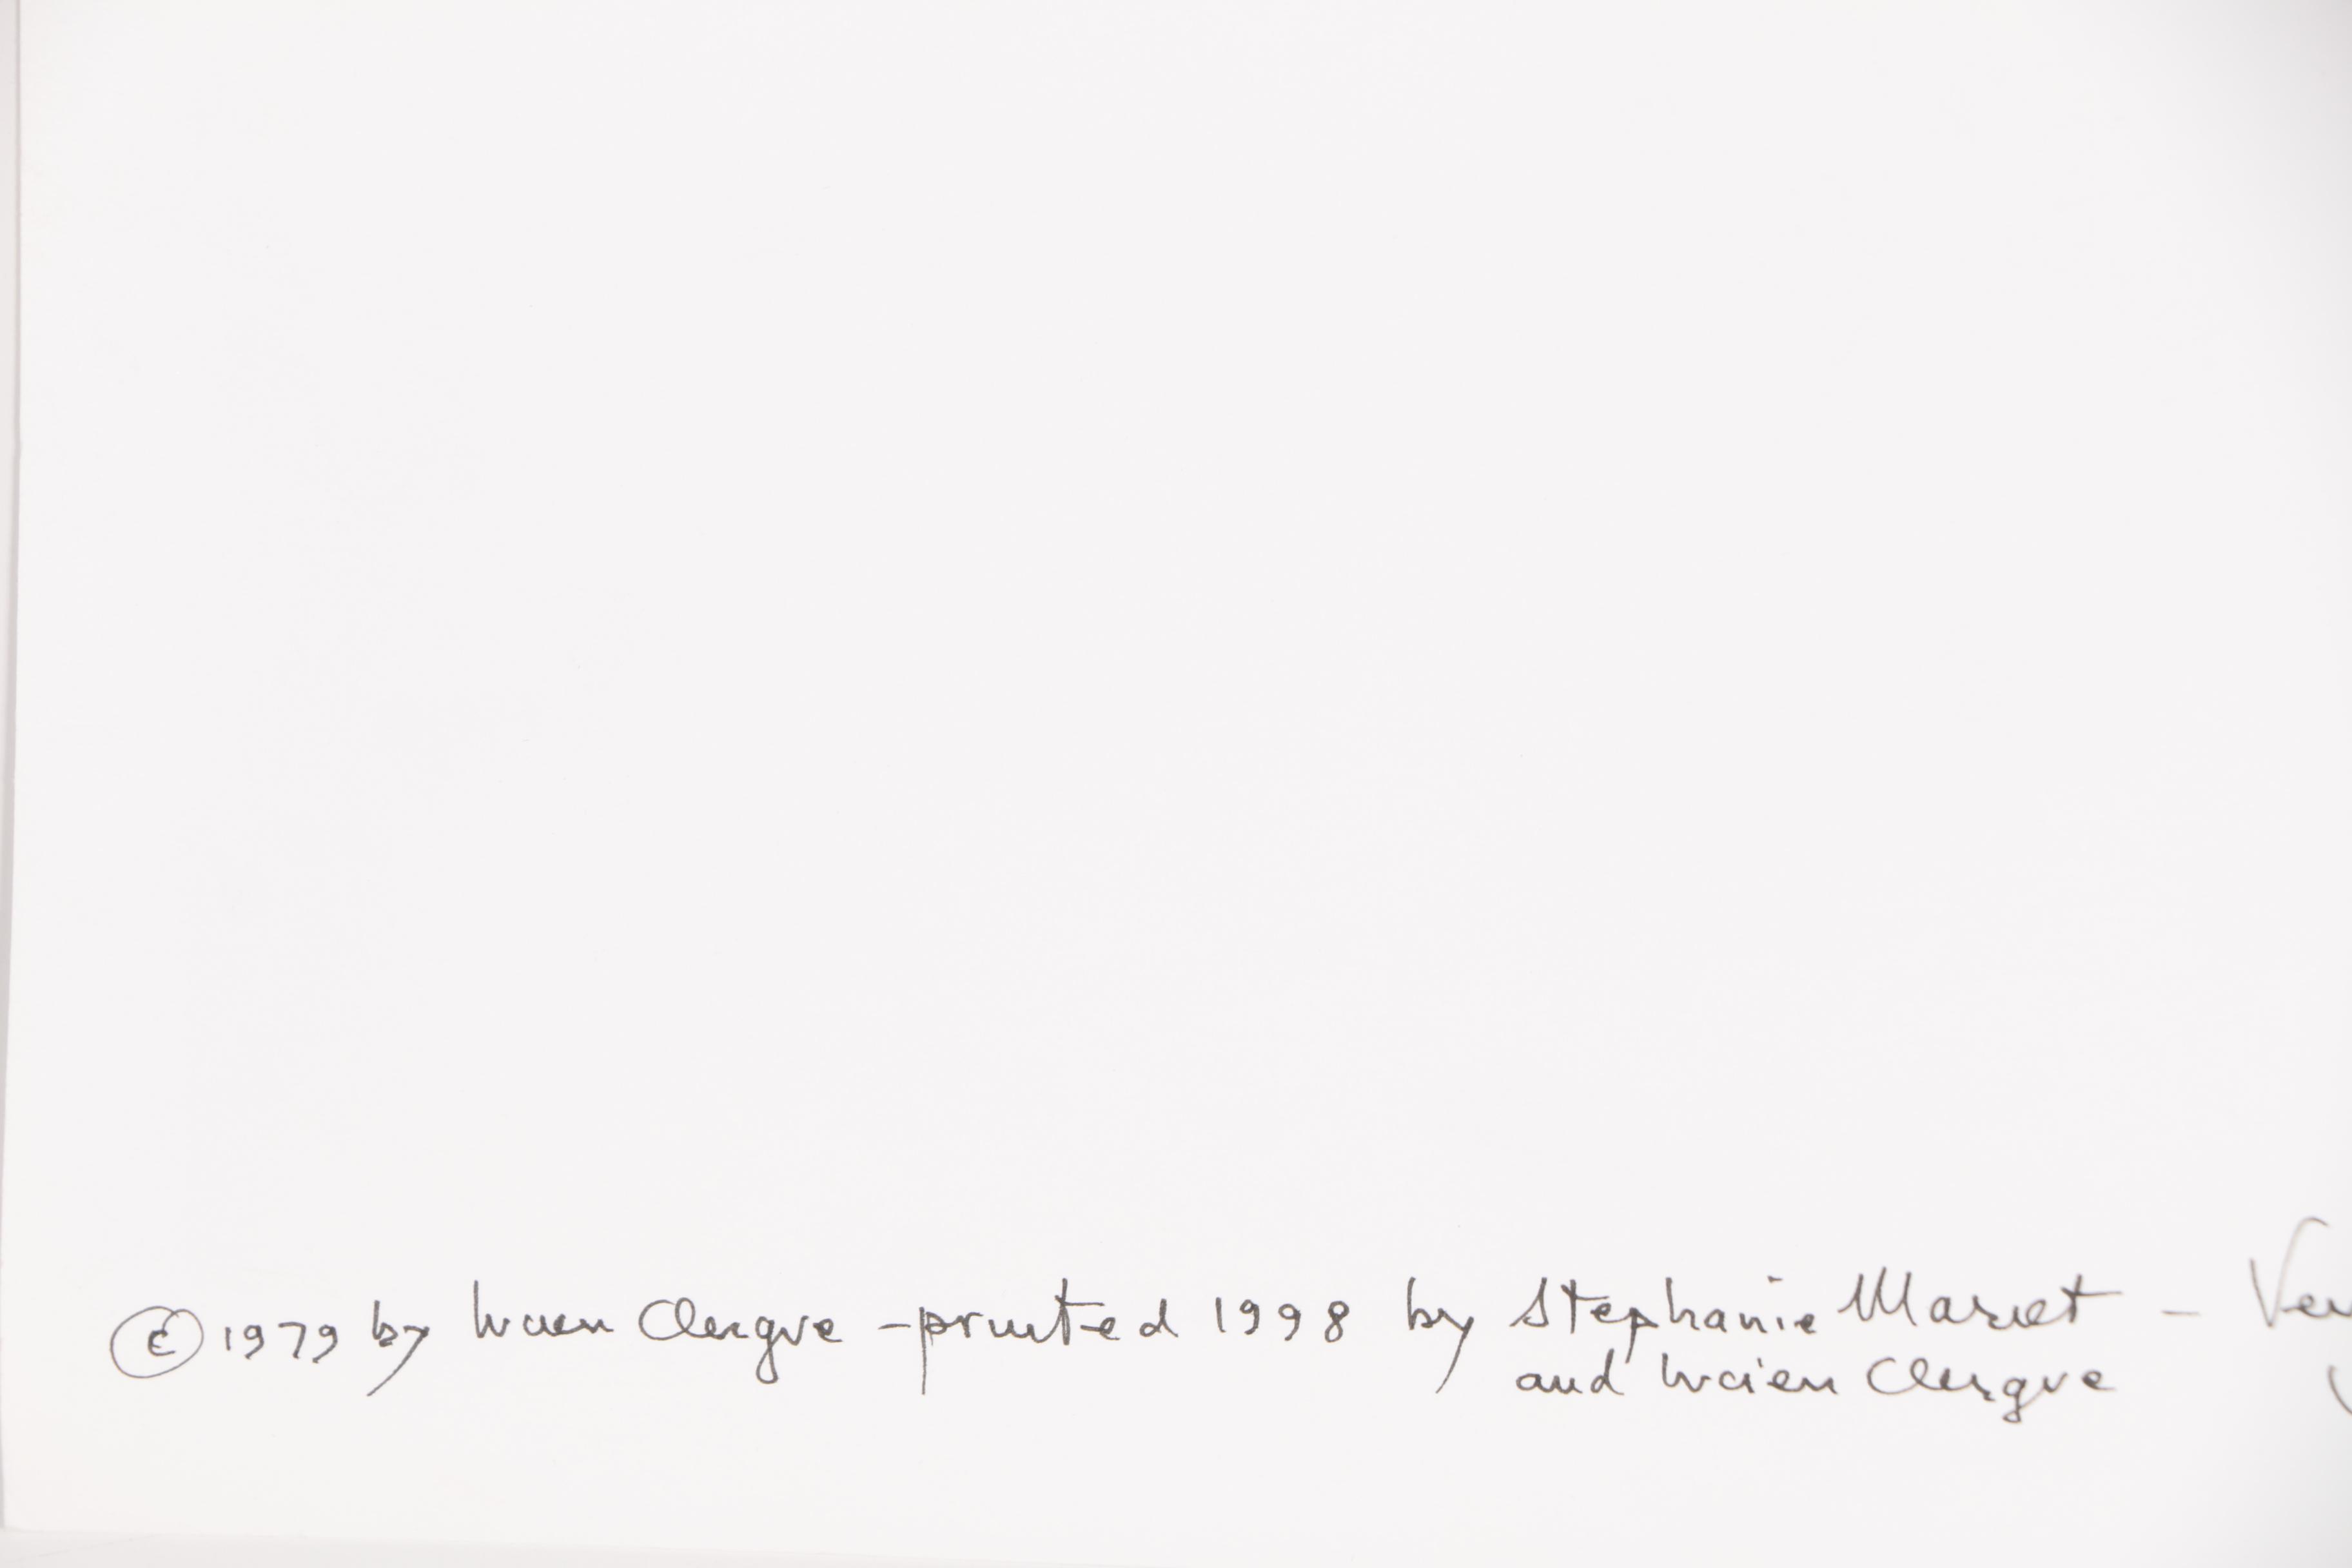 © 1979 by Lucien Clergue - printed 1998 by Stephanie Mariet -
and Lucien Clergue